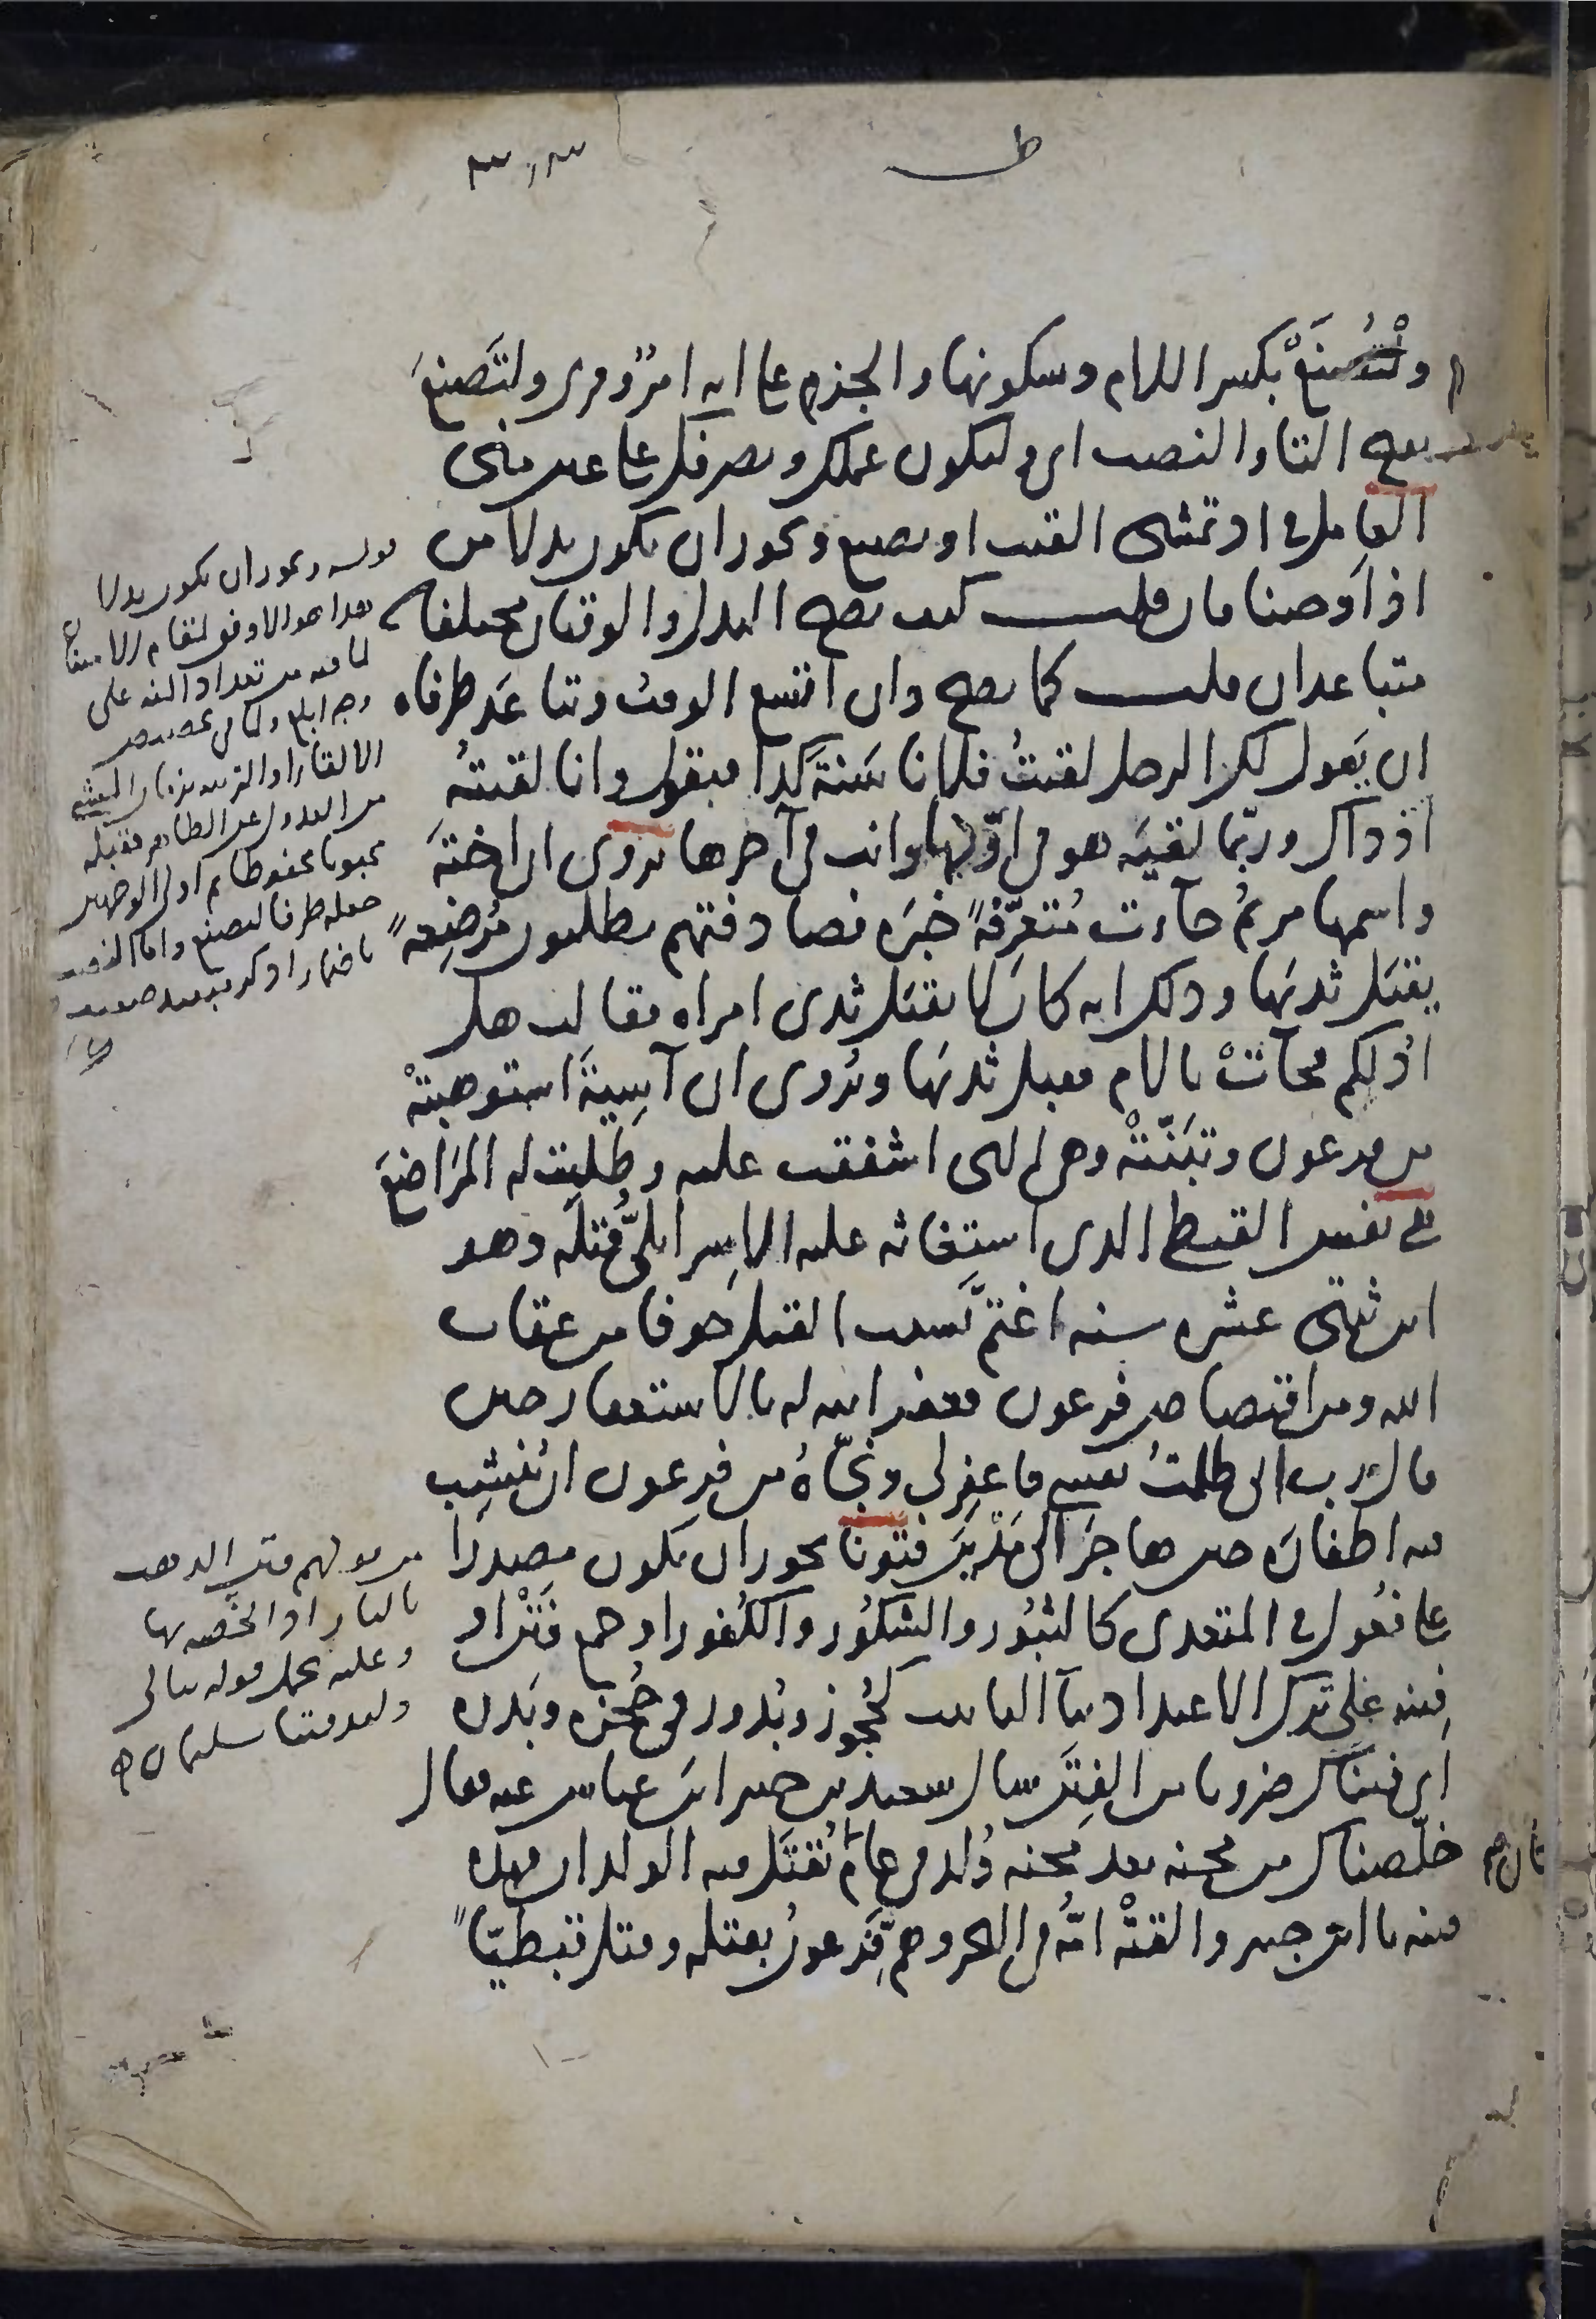 ط
ولْتُصْنَعْ بكسر اللام وسكونها والجزم على انه امرٌ وقرئ ولتَصنعَ
بفتح التا والنصب اى وليكون عملك وتصرفك على عين منى
العامل فى اذ تمشى القيت او تصنع ويجوز ان يكون بدلا من
اذ اَوحينا فان قلت كيف يصح البدل والوقتان مختلفان
متباعدان قلت كما يصح وان اتسع الوقت وتباعَد طرفاه
ان يَقول لك الرجل لقيتُ فلانا سَنةَ كذا فيقول وانا لقيتهُ
اذ ذاك وربّما لقيَه هو فى اوّلها وانت فى آخرها يُروى ان اختهَ
واسمها مريمُ جآءت مُتعرّفةً خبَره فصادفتهم يطلبون مُرضِعةً
يقبَل ثديَها وذلك انه كان لا يقبَل ثدى امراه فقالت هل
ادُلكم فجآتْ بالام فقبل ثديَها ويُروى ان آسيةَ استوهبتْه
من فرعون وتبَنّتْه وهى التى اشفقت عليه وطلبت له المَراضعَ
هى نفس القبطى الذى استغاثه عليه الاسرائيلىُّ قتله وهو
ابن ثنتى عشره سنه اغتمَّ بسبب القتل خوفا من عقاب
الله ومن اقتصاص فرعون فغفر الله له بالاستغفار حين
قال رب انى ظلمتُ نفسى فاغفر لى ونجّاهُ من فرعون ان يُنشِب
فيه اظفارَه حين هاجَر الى مَدْيَنَ فتونا يجوز ان يكون مصدرا
على فُعُول فى المتعدى كالثبُور والشكُور والكُفور او جمع فَتْن او
فِتنه على ترك الاعتداد بتآ التانيث كحُجُوز وبُدور فى حُجزه وبَدره
اى فتناك ضروبا من الفِتَن سال سعيد بن جبير ابنَ عباس عنه فقال
خلّصناك من محنه بعد محنه وُلد فى عام يُقتَل فيه الولدان فهذه
فتنه يا ابن جبير والقتْه امّه فى البحر وهَمّ فِرعونُ بقتله وقتل قبطيّا
قوله ويجوز ان يكون بدلا
هذا هو الاوفق لمقام الامتنان
لما فيه من تعداد المنه على
وجه ابلغ ولما فى تخصيص
الالقا
من العدول عن الظاهر فقبله
محبوبا محفوظا ثم اولى الوجهين
جعله ظرفا لتصنع واما النصب
باضمار اذكر فبعيد
من قولهم فتن الذهب
بالنار اذا
وعليه يحمل قوله تعالى
ولقد فتنا سليمان